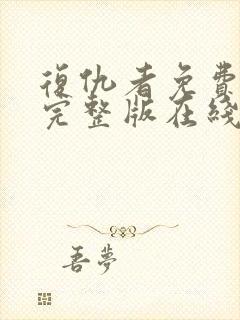 復仇者免費
完整版在綫
吾夢